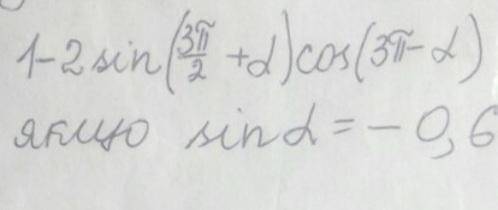 1-2sin(3π/2 +α)cos(3π-α)
якщо sinα=-0,6